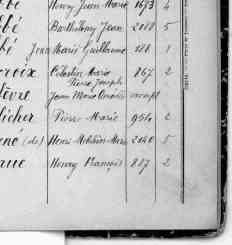 bé Henry Jean Marie 1673 4
bé Barthélémy Jean 2108 5
bé Jean Marie Guillaume 181 1
croix Célestin Marie 867 2
Pierre Joseph
fevre Jean Marie exempt
licher Pierre Marie 954 2
né (de) Henri Marie 2140 5
rue Henry François 827 2